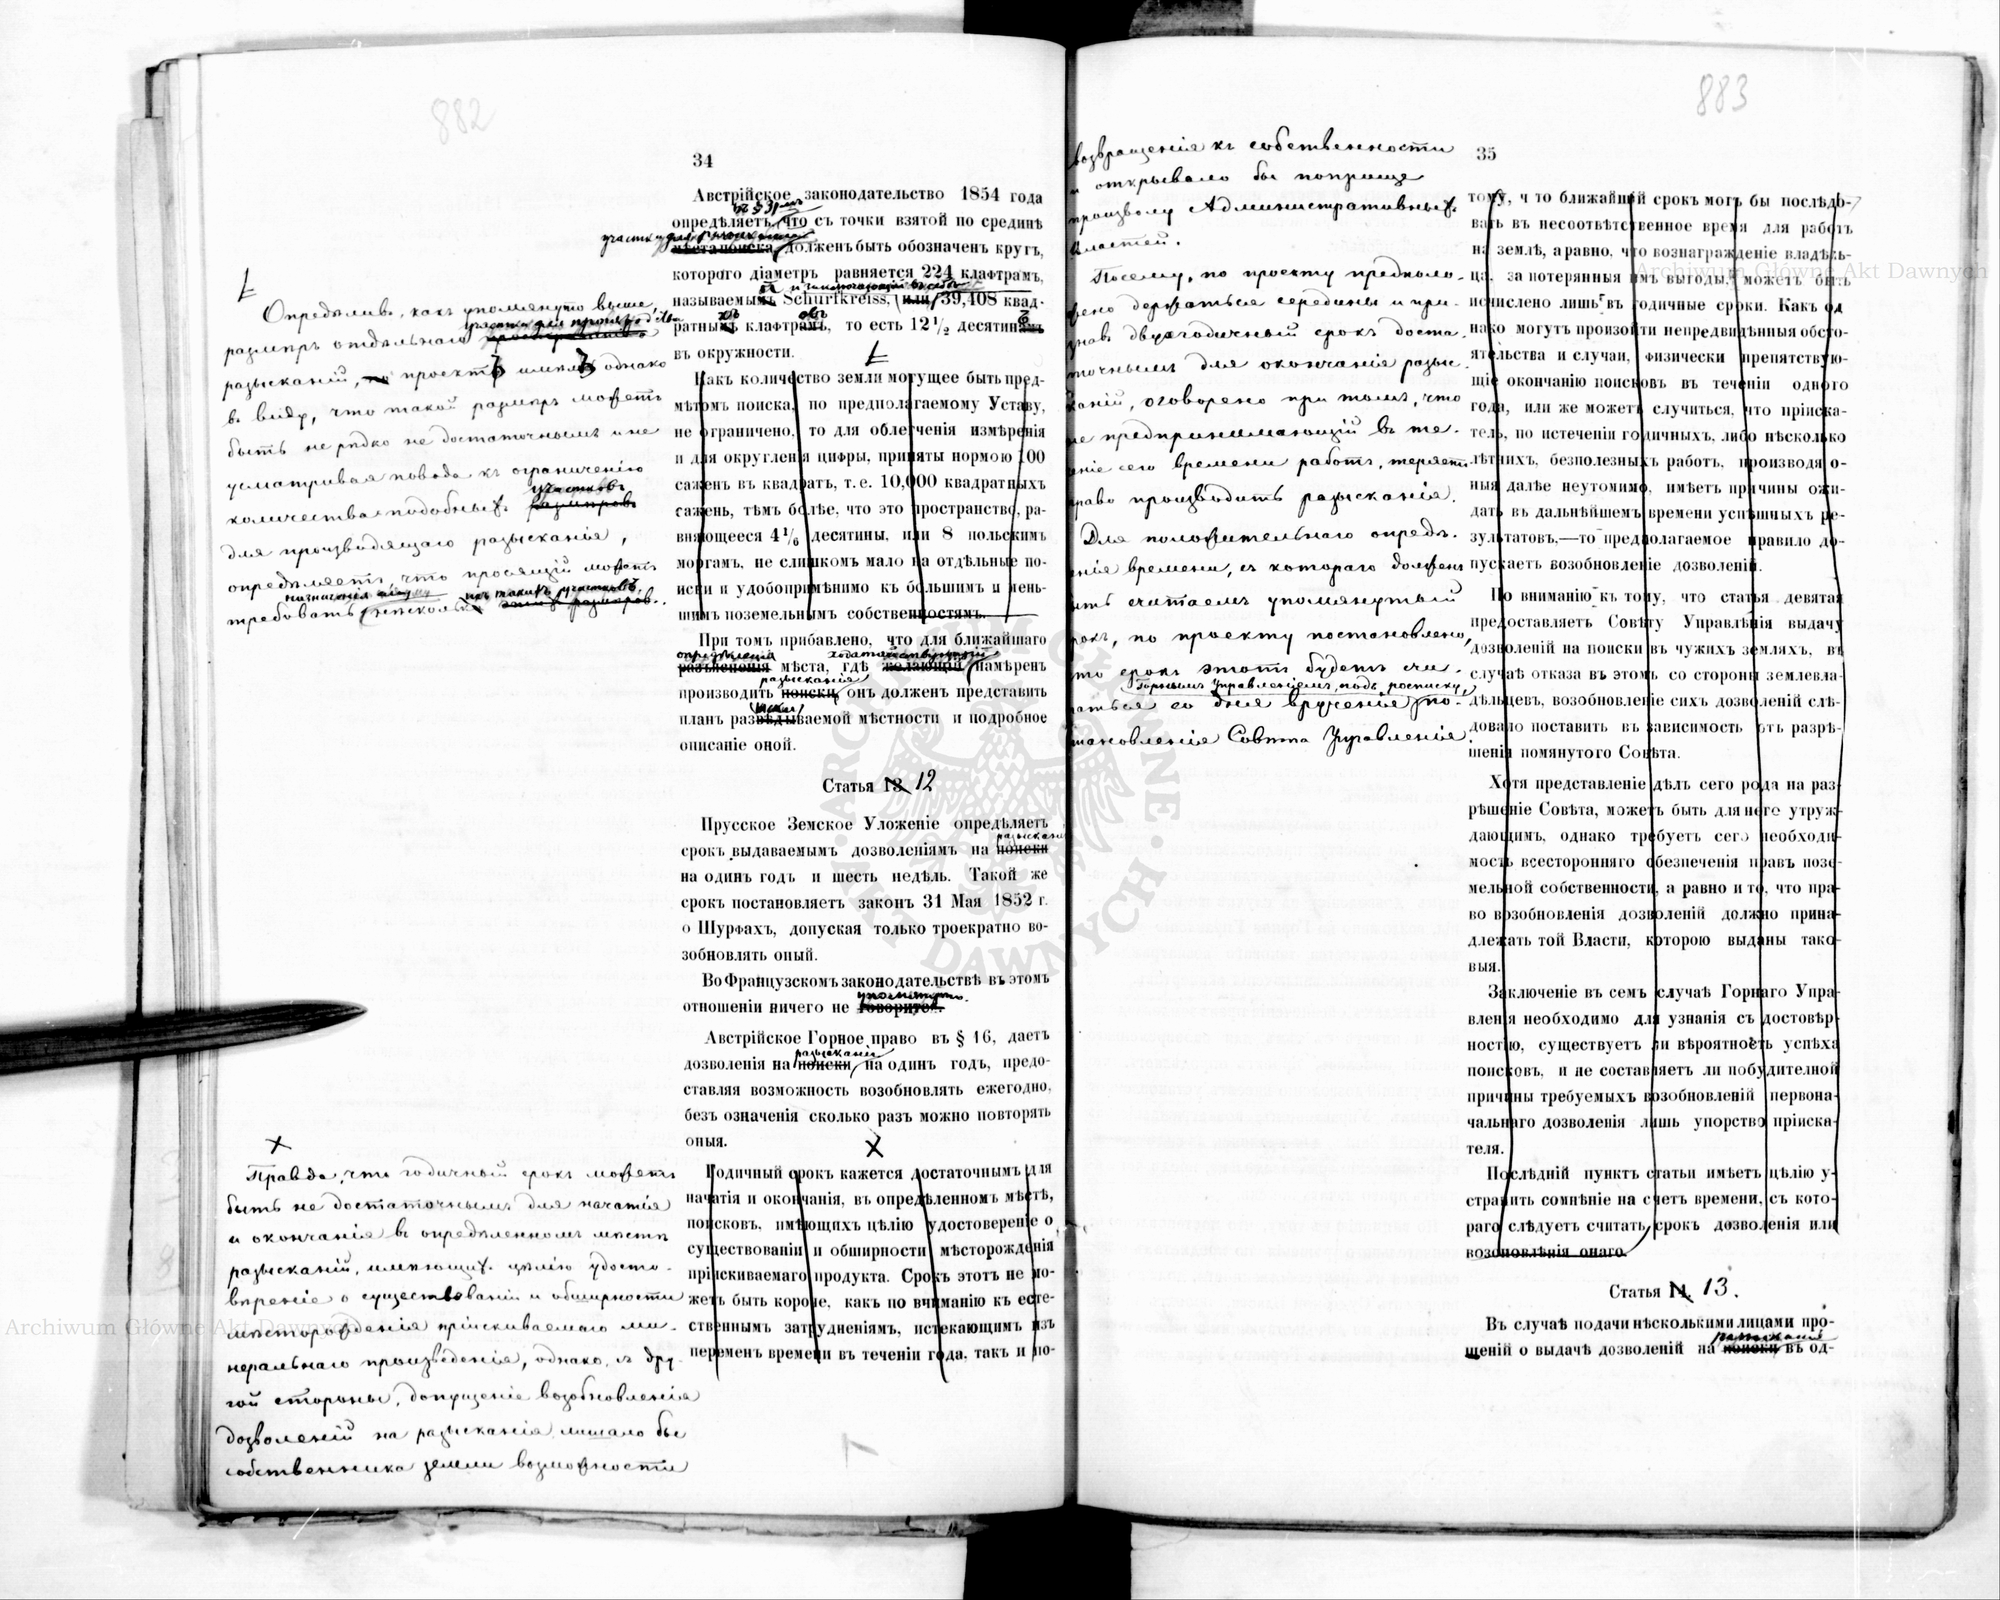 882
34
Австрійское законодательство 1854 года
въ § 31мъ
опредѣляетъ, что съ точки взятой по срединѣ
участка для
мѣста поиска, долженъ быть обозначенъ кругъ,
котораго діаметръ равняется 224 клафтрамъ,
и заключающій въ себѣ
называемымъ Schürfkreiss, (или) 39,408 квад-
ратнымъ клафтрамъ, то есть 12 1/2 десятинамъ
въ окружности.
Какъ количество земли могущее быть пред-
мѣтомъ поиска, по предполагаемому Уставу,
не ограничено, то для облегченія измѣренія
и для округленія цифры, приняты нормою 100
сажень въ квадратъ, т. е. 10,000 квадратныхъ
сажень, тѣмъ болѣе, что это пространство, ра-
вняющееся 4 1/6 десятины, или 8 польскимъ
моргамъ, не слишкомъ мало на отдѣльные по-
иски и удобопримѣнимо къ большимъ и мень-
шимъ поземельнымъ собственностямъ.
При томъ прибавлено, что для ближайшаго
опредѣленія ходатайствующій
разъясненія мѣста, гдѣ желающій намѣренъ
разысканія
производить поиски, онъ долженъ представить
планъ развѣдываемой мѣстности и подробное
описаніе оной.
Статья 13 12
Прусское Земское Уложеніе опредѣляетъ
разысканія
срокъ выдаваемымъ дозволеніямъ на поиски
на одинъ годъ и шесть недѣль. Такой же
срокъ постановляетъ законъ 31 Мая 1852 г.
о Шурфахъ, допуская только троекратно во-
зобновлять оный.
Во Французскомъ законодательствѣ въ этомъ
упомянуто.
отношеніи ничего не говорится.
Австрійское Горное право въ § 16, даетъ
разысканія
дозволенія на поиски, на одинъ годъ, предо-
ставляя возможность возобновлять ежегодно,
безъ означенія сколько разъ можно повторять
оныя.
Годичный срокъ кажется достаточнымъ для
начатія и окончанія, въ опредѣленномъ мѣстѣ,
поисковъ, имѣющихъ цѣлію удостовереніе о
существованіи и обширности мѣсторожденія
пріискиваемаго продукта. Срокъ этотъ не мо-
жетъ быть короче, какъ по вниманію къ есте-
ственнымъ затрудненіямъ, истекающимъ изъ
перемѣнъ времени въ теченіи года, такъ и по-
Опредѣливъ, какъ упомянуто выше,
участка для производства
размѣръ отдѣльнаго пространства
разысканій, проектъ имѣлъ однако
въ виду, что такой размѣръ можетъ
быть не рѣдко не достаточнымъ и не
усматривая повода къ ограниченію
участковъ
количества подобныхъ размѣровъ
для производящаго разысканія,
опредѣляетъ, что просящій можетъ
назначенія ему такихъ участковъ.
требовать нѣсколько этихъ размѣровъ.
Правда, что годичный срокъ можетъ
быть не достаточнымъ для начатія
и окончанія въ опредѣленномъ мѣстѣ
разысканій, имѣющихъ цѣлію удосто-
вѣреніе о существованіи и обширности
мѣсторожденія пріискиваемаго ми-
неральнаго произведенія, однако, съ дру-
гой стороны, допущеніе возобновленія
дозволеній на разысканія лишало бы
собственника земли возможности
883
возвращенія къ собственности
и открывало бы поприще
произволу Административныхъ
Властей.
Посему, по проекту предполо-
жено держаться середины и при-
знавъ двухгодичный срокъ доста-
точнымъ для окончанія разыс-
каній, оговорено при томъ, что
не предпринимающій въ те-
ченіе сего времени работъ, теряетъ
право производить разысканія.
Для положительнаго опредѣ-
ленія времени, съ котораго долженъ
быть считаемъ упомянутый
срокъ, по проекту постановлено,
что срокъ этотъ будетъ счи-
Горнымъ Управленіемъ, подъ росписку,
таться со дня врученія по-
становленія Совѣта Управленія
35
тому, что ближайшій срокъ могъ бы послѣдо-
вать въ несоотвѣтственное время для работъ
на землѣ, а равно, что вознагражденіе владѣль-
ца, за потерянныя имъ выгоды, можетъ быть
исчислено лишь въ годичные сроки. Какъ од
нако могутъ произойти непредвидѣнныя обсто-
ятельства и случаи, физически препятствую-
щіе окончанію поисковъ въ теченіи одного
года, или же можетъ случиться, что пріиска-
тель, по истеченіи годичныхъ, либо нѣсколько
лѣтнихъ, безполезныхъ работъ, производя о-
ныя далѣе неутомимо, имѣетъ причины ожи-
дать въ дальнѣйшемъ времени успѣшныхъ ре-
зультатовъ,—то предполагаемое правило до-
пускаетъ возобновленіе дозволеній.
По вниманію къ тому, что статья девятая
предоставляетъ Совѣту Управленія выдачу
дозволеній на поиски въ чужихъ земляхъ, въ
случаѣ отказа въ этомъ со стороны землевла-
дѣльцевъ, возобновленіе сихъ дозволеній слѣ-
довало поставить въ зависимость отъ разрѣ-
шенія помянутого Совѣта.
Хотя представленіе дѣлъ сего рода на раз-
рѣшеніе Совѣта, можетъ быть для него утруж-
дающимъ, однако требуетъ сего необходи-
мость всесторонняго обезпеченія правъ позе-
мельной собственности, а равно и то, что пра-
во возобновленія дозволеній должно прина-
длежать той Власти, которою выданы тако-
выя.
Заключеніе въ семъ случаѣ Горнаго Упра-
вленія необходимо для узнанія съ достовѣр-
ностію, существуетъ ли вѣроятность успѣха
поисковъ, и не составляетъ ли побудителной
причины требуемыхъ возобновленій первона-
чальнаго дозволенія лишь упорство пріиска-
теля.
Послѣдній пунктъ статьи имѣетъ цѣлію у-
странить сомнѣніе на счетъ времени, съ кото-
раго слѣдуетъ считать срокъ дозволенія или
возобновленія онаго.
Статья 14. 13.
Въ случаѣ подачи нѣсколькими лицами про-
разысканія
щеній о выдачѣ дозволеній на поиски въ од-
Archiwum Główne Akt Dawnych
Archiwum Główne Akt Dawnych
ARCHIWUM GŁÓWNE AKT DAWNYCH